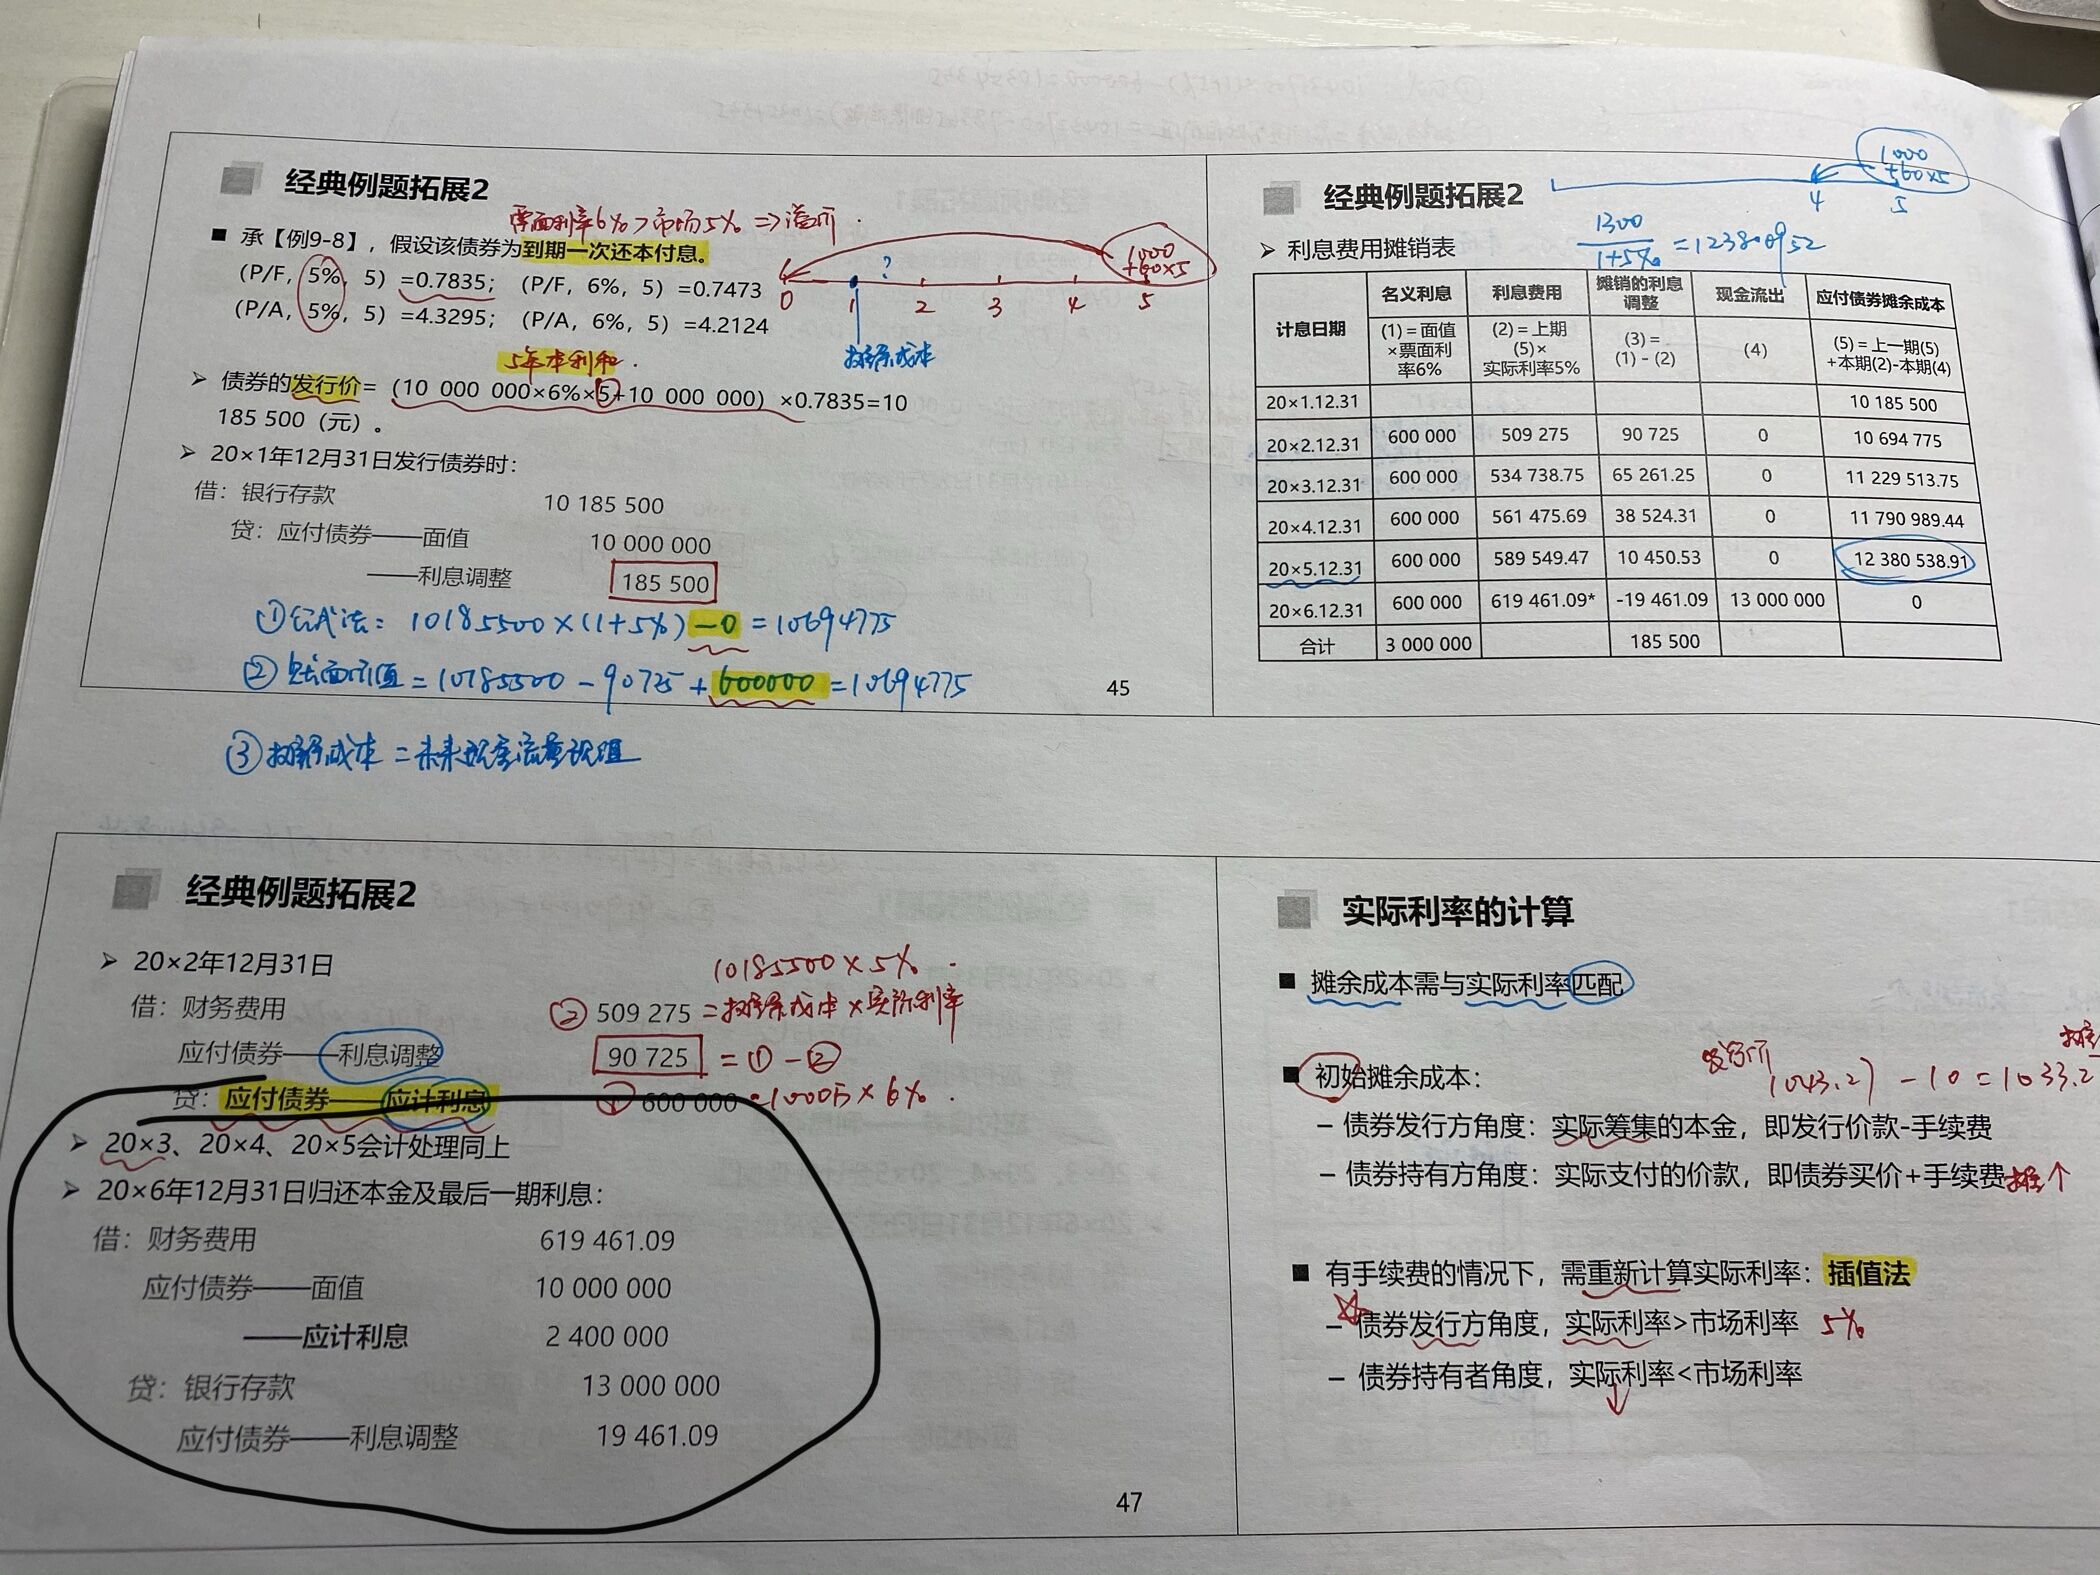 经典例题拓展2
票面利率6% > 市场5% => 溢价.
■ 承【例9-8】，假设该债券为到期一次还本付息。
(P/F, 5%, 5) =0.7835; (P/F, 6%, 5) =0.7473
(P/A, 5%, 5) =4.3295; (P/A, 6%, 5) =4.2124
1000
+60×5
?
0 1 2 3 4 5
摊余成本
5年本利和.
➢ 债券的发行价= (10 000 000×6%×5+10 000 000) ×0.7835=10
185 500 (元) 。
➢ 20×1年12月31日发行债券时:
借: 银行存款 10 185 500
贷: 应付债券——面值 10 000 000
——利息调整 185 500
①公式法: 10185500×(1+5%) -0 = 10694775
② 账面价值 = 10185500 - 90725 + 600000 = 10694775
45
③ 摊余成本 = 未来现金流量现值
经典例题拓展2
1000
+60×5
4 5
➢ 利息费用摊销表
1300
1+5% =12380.0952
计息日期 名义利息 利息费用 摊销的利息调整 现金流出 应付债券摊余成本
(1) = 面值×票面利率6% (2) = 上期(5)×实际利率5% (3) = (1) - (2) (4) (5) = 上一期(5)+本期(2)-本期(4)
20×1.12.31 10 185 500
20×2.12.31 600 000 509 275 90 725 0 10 694 775
20×3.12.31 600 000 534 738.75 65 261.25 0 11 229 513.75
20×4.12.31 600 000 561 475.69 38 524.31 0 11 790 989.44
20×5.12.31 600 000 589 549.47 10 450.53 0 12 380 538.91
20×6.12.31 600 000 619 461.09* -19 461.09 13 000 000 0
合计 3 000 000 185 500
经典例题拓展2
➢ 20×2年12月31日
10185500 × 5% .
借: 财务费用 ② 509 275 = 摊余成本×实际利率
应付债券——利息调整 90 725 = ① - ②
贷: 应付债券——应计利息 ① 600 000 =1000万×6% .
➢ 20×3、20×4、20×5会计处理同上
➢ 20×6年12月31日归还本金及最后一期利息:
借: 财务费用 619 461.09
应付债券——面值 10 000 000
——应计利息 2 400 000
贷: 银行存款 13 000 000
应付债券——利息调整 19 461.09
47
实际利率的计算
■ 摊余成本需与实际利率匹配
发行价
1043.27 - 10 = 1033.2
■ 初始摊余成本:
– 债券发行方角度: 实际筹集的本金，即发行价款-手续费
– 债券持有方角度: 实际支付的价款，即债券买价+手续费 摊↑
■ 有手续费的情况下，需重新计算实际利率: 插值法
– 债券发行方角度，实际利率>市场利率 5%
– 债券持有者角度，实际利率<市场利率